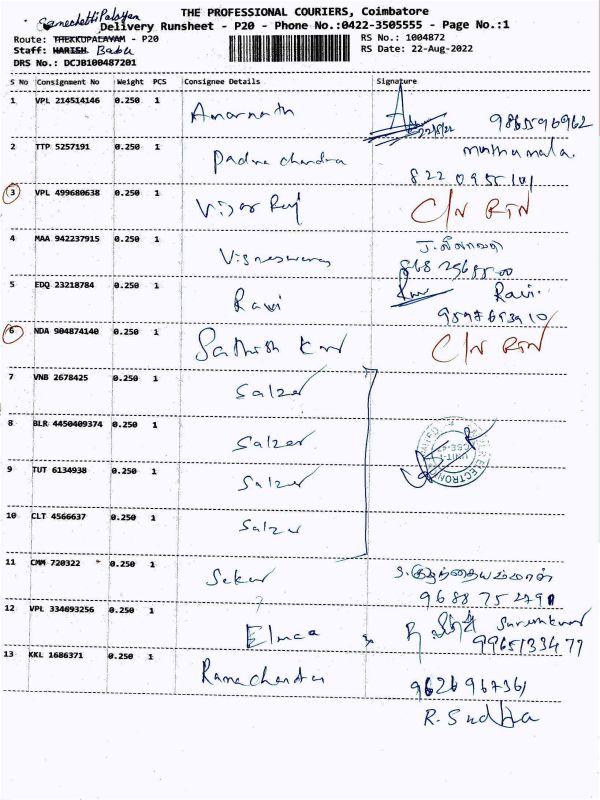 THE PROFESSIONAL COURIERS, Coimbatore
Delivery Runsheet - P20 - Phone No.:0422-3505555 - Page No.:1
Route: THEKKUPALAYAM - P20
RS No.: 1004872
Staff: HARISH Babu
RS Date: 22-Aug-2022
DRS No.: DCJB100487201
S No Consignment No Weight PCS Consignee Details Signature
1 VPL 214514146 0.250 1 Amarnath 22/8/22 9865596962
2 TTP 5257191 0.250 1 Padma chandra muthumala.
822 0955101
3 VPL 499680638 0.250 1 Vijay Raj C/N RTN
4 MAA 942237915 0.250 1 Vigneswaran
5 EDQ 23218784 0.250 1 Ravi Ravi.
6 NDA 904874140 0.250 1 C/N RTN
7 VNB 2678425 0.250 1 Salzer
8 BLR 4450409374 0.250 1 Salzer
9 TUT 6134938 0.250 1 Salzer
10 CLT 4566637 0.250 1 Salzer
11 CMM 720322 0.250 1 Sekar
12 VPL 334693256 0.250 1
9965133477
13 KKL 1686371 0.250 1 Ramachandra
9626967361
R. Sudha